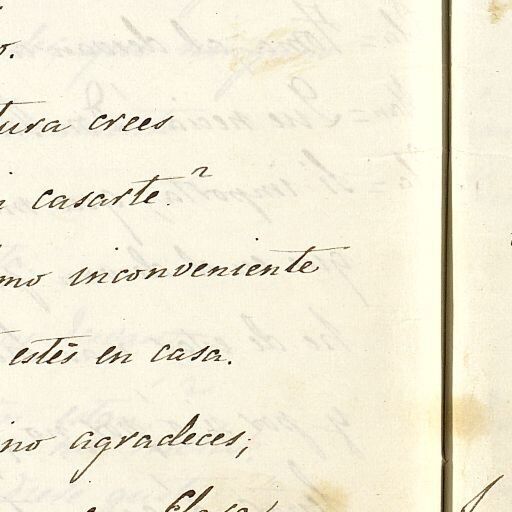 o.
tura crees
i casarte?
mo inconveniente
estés en casa.
ino agradeces,